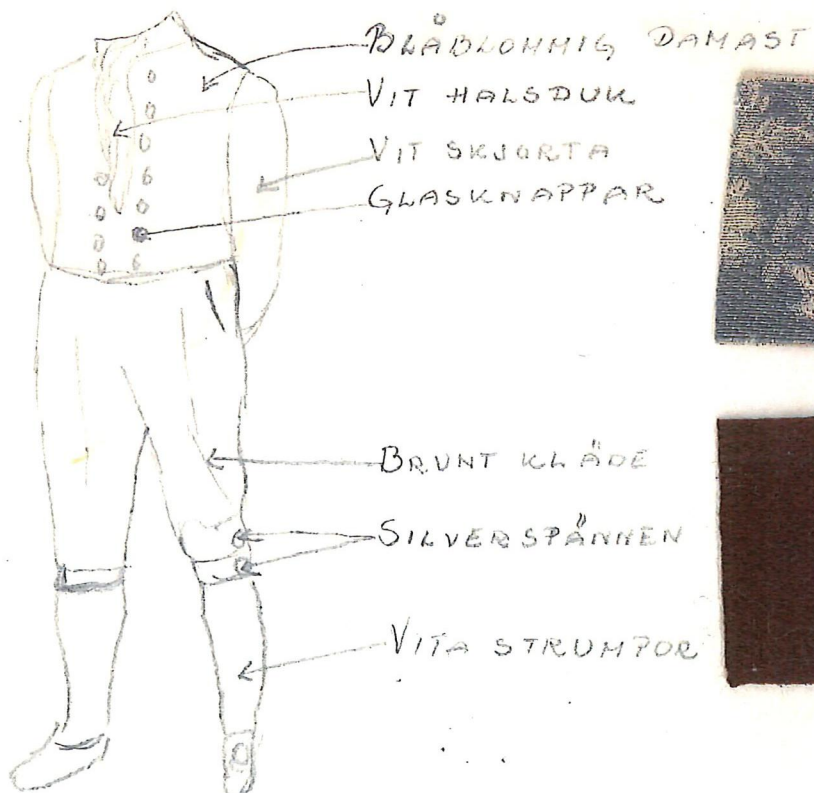 BLÅBLOMMIG DAMAST
VIT HALSDUK
VIT SKJORTA
GLASKNAPPAR
BRUNT KLÄDE
SILVERSPÄNNEN
VITA STRUMPOR